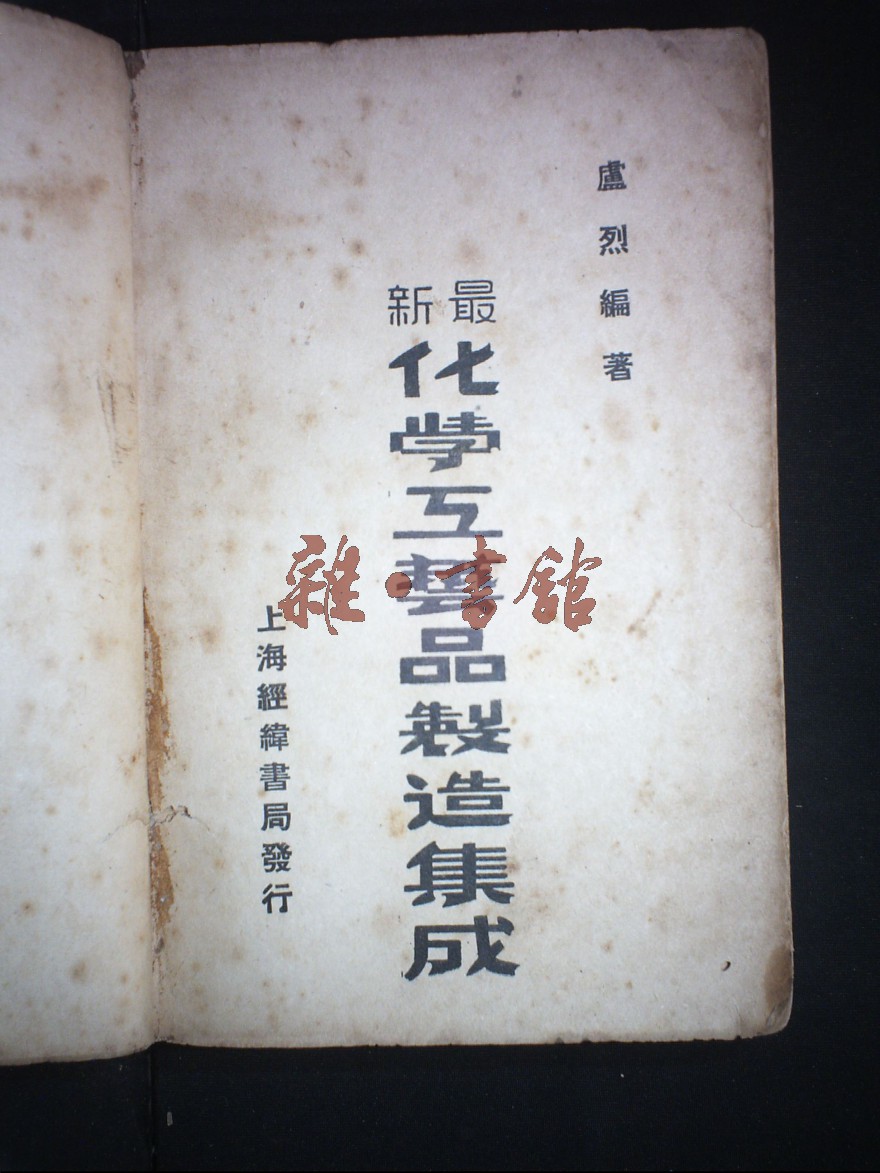 盧烈編著
最新
化學工藝品製造集成
上海經緯書局發行
雜·書館